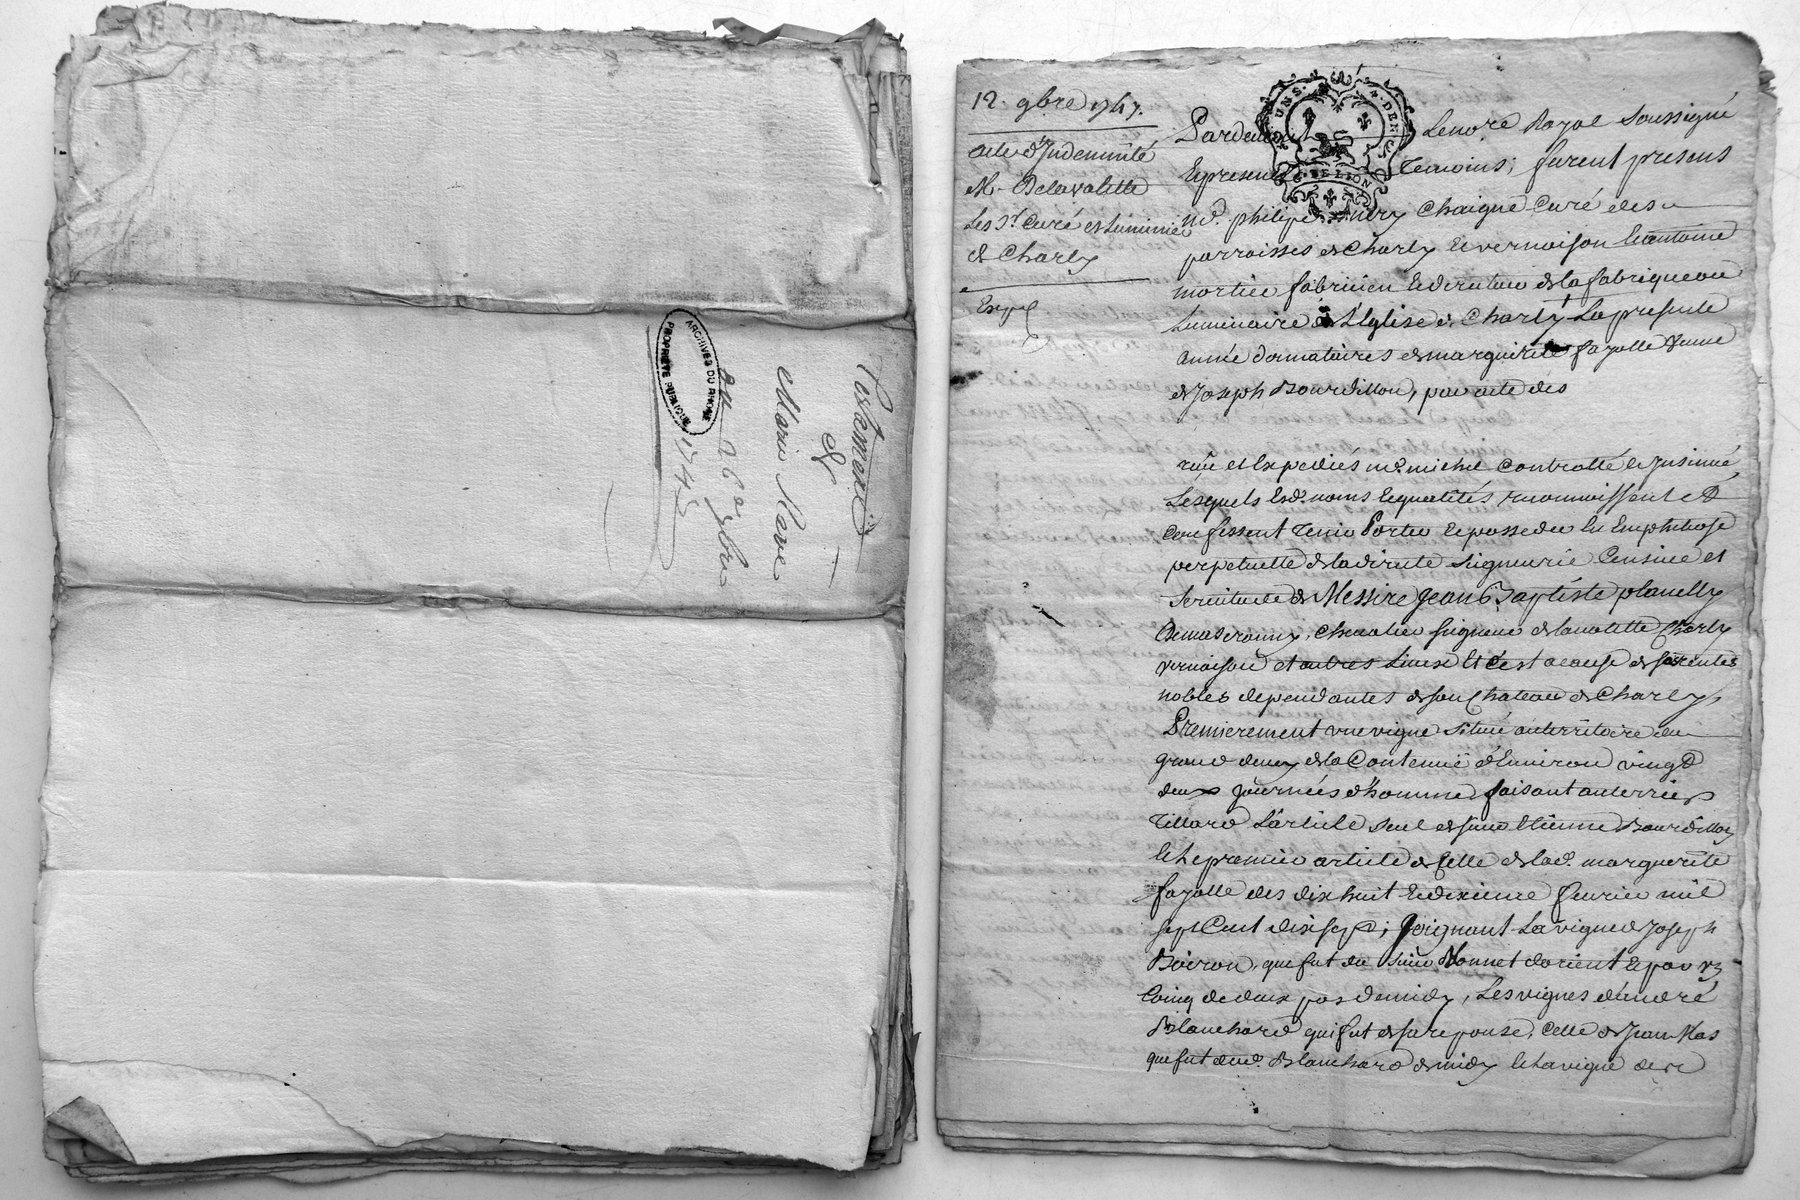 Testament
de
Marie Nave
du 26e 9bre
1745
ARCHIVES DU RHONE
PROPRIÉTÉ PUBLIQUE
12. 9bre 1747.
acte d'Indemnité
M. Delavalette
Les Srs Curé et Luminier
de Charly
Expé
UNS. 4. DEN
G. DE LION
Pardevant Le nore Royal Soussigné
Et presents Temoins; furent presens
philipe Chaigne Curé des
parroisses de Charly et vernaison Et antoine
mortier fabricien de la fabrique ou
Luminaire de L'Eglise de Charly La presente
année donnataires de marguerite fayolle veuve
de Joseph Bourdillon, par acte des
reçu et Expediés me. michel Controllé et Insinué,
Lesquels Esd. noms Et qualités reconnoissent Et
Confessent Tenir Porter Et posseder En Emphiteose
perpetuelle de la directe Seigneurie Censive et
Servitude de Messire Jean Baptiste planelly
Demascranny, Chevalier seigneur de lavalette Charly
vernaison et autres Lieux Et C'est a cause de ses rentes
nobles dependantes de son Chateau de Charly,
Premierement une vigne Située au territoire du
grand de la Contenue d'Environ vingt
deux journées d'homme faisant au terrier
Tillard L'article seul de sieur Etienne Bourdillon
Et Le premier article de Celle de lad. marguerite
fayolle des dix huit Et dixieme fevrier mil
sept Cent dix sept; Joignant La vigne de Joseph
Boiron, que fut du sieur Monnet d'orient Et par un
Coing de deux pas de midy, Les vignes d'andré
Blanchard qui fut de sa reponse, Celle de Jean Mas
que fut dud. Blanchard de midy Et la vigne de